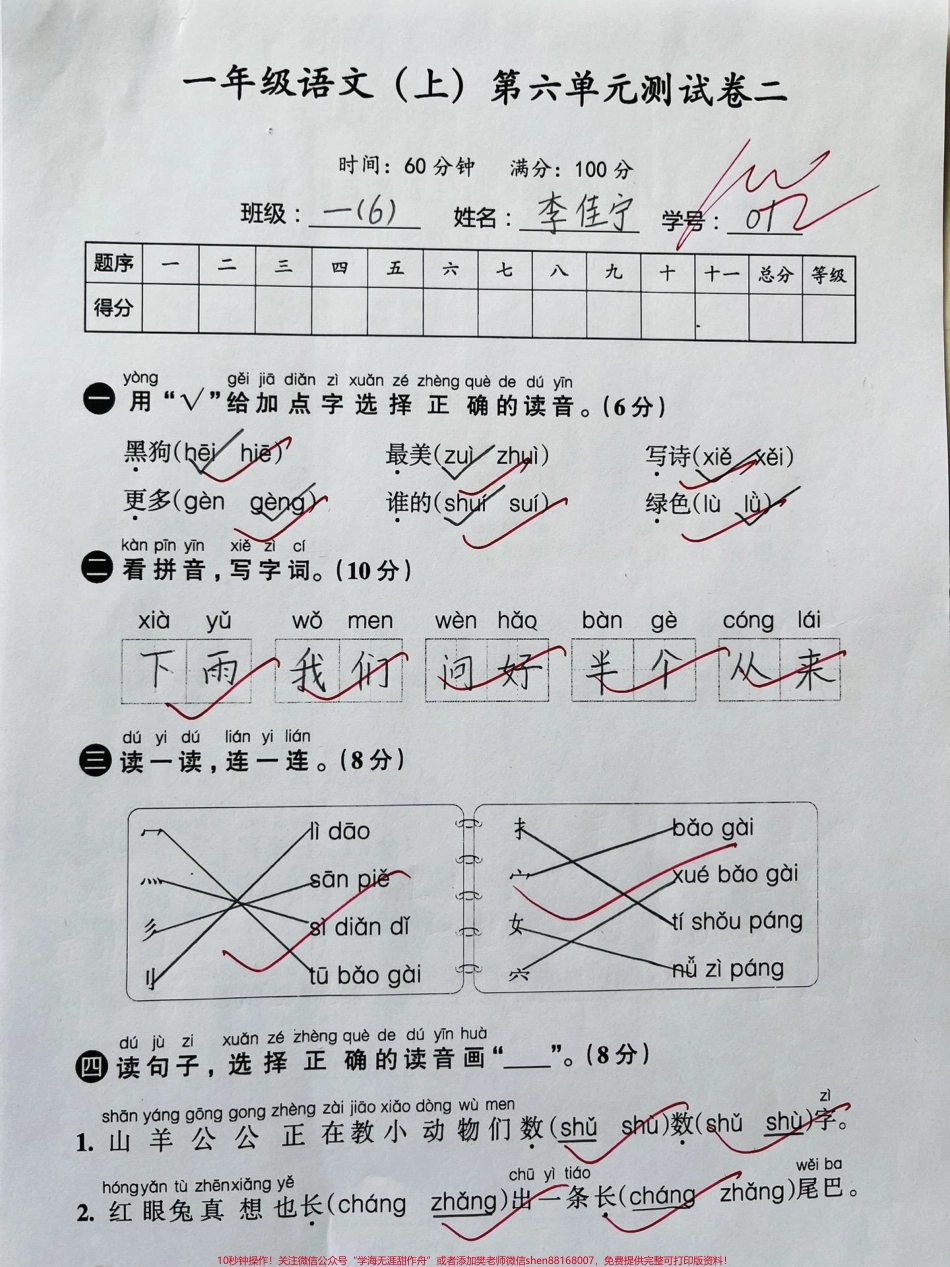 一年级语文（上）第六单元测试卷二
时间：60分钟 满分：100分
班级：一(6) 姓名：李佳宁 学号：01
题序 一 二 三 四 五 六 七 八 九 十 十一 总分 等级
得分
yòng gěi jiā diǎn zì xuǎn zé zhèng què de dú yīn
一 用“√”给加点字选择正确的读音。（6分）
黑狗(hēi hiē) 最美(zuì zhuì) 写诗(xiě xěi)
更多(gèn gèng) 谁的(shuí suí) 绿色(lù lǜ)
kàn pīn yīn xiě zì cí
二 看拼音，写字词。（10分）
xià yǔ wǒ men wèn hǎo bàn gè cóng lái
下雨 我们 问好 半个 从来
dú yi dú lián yi lián
三 读一读，连一连。（8分）
冖 lì dāo 扌 bǎo gài
灬 sān piě 宀 xué bǎo gài
彡 sì diǎn dǐ 女 tí shǒu páng
刂 tū bǎo gài 穴 nǚ zì páng
dú jù zi xuǎn zé zhèng què de dú yīn huà
四 读句子，选择正确的读音画“___”。（8分）
shān yáng gōng gong zhèng zài jiāo xiǎo dòng wù men zì
1. 山羊公公正在教小动物们数(shǔ shù)数(shǔ shù)字。
hóng yǎn tù zhēn xiǎng yě chū yì tiáo wěi ba
2. 红眼兔真想也长(cháng zhǎng)出一条长(cháng zhǎng)尾巴。
10秒钟操作！关注微信公众号“学海无涯甜作舟”或者添加樊老师微信shen88168007，免费提供完整可打印版资料！